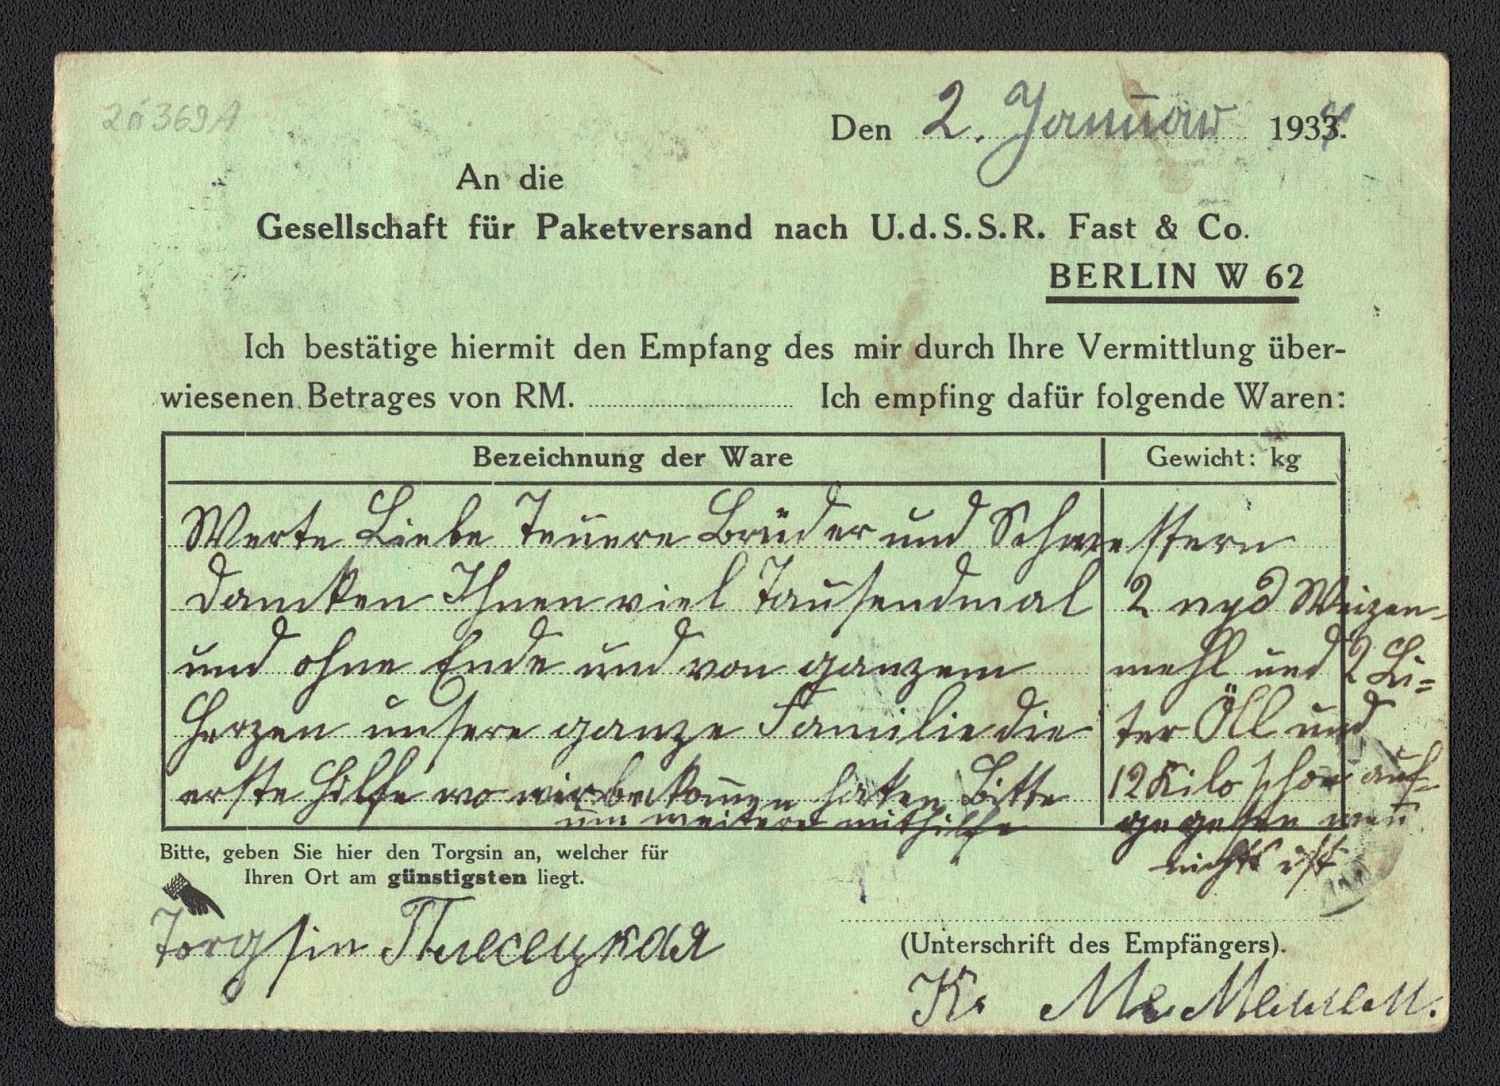 2й369А
Den 2. Januar 1934.
An die
Gesellschaft für Paketversand nach U.d.S.S.R. Fast & Co.
BERLIN W 62
Ich bestätige hiermit den Empfang des mir durch Ihre Vermittlung über-
wiesenen Betrages von RM. Ich empfing dafür folgende Waren:
Bezeichnung der Ware Gewicht: kg
Werte Liebe Teuere Brüder und Schwestern
dancken Ihnen viel Tausendmal
und ohne Ende und von ganzem
Herzen unsere ganze Familie die
erste Hilfe wo wir bekomen haben Bitte
um weitere mithilfe
2 Weizen-
mehl und 2 Li=
ter Öll und
12 Kilo schon auf-
gegessen
nichts ist
Bitte, geben Sie hier den Torgsin an, welcher für
Ihren Ort am günstigsten liegt.
Torgsin
(Unterschrift des Empfängers).
К.